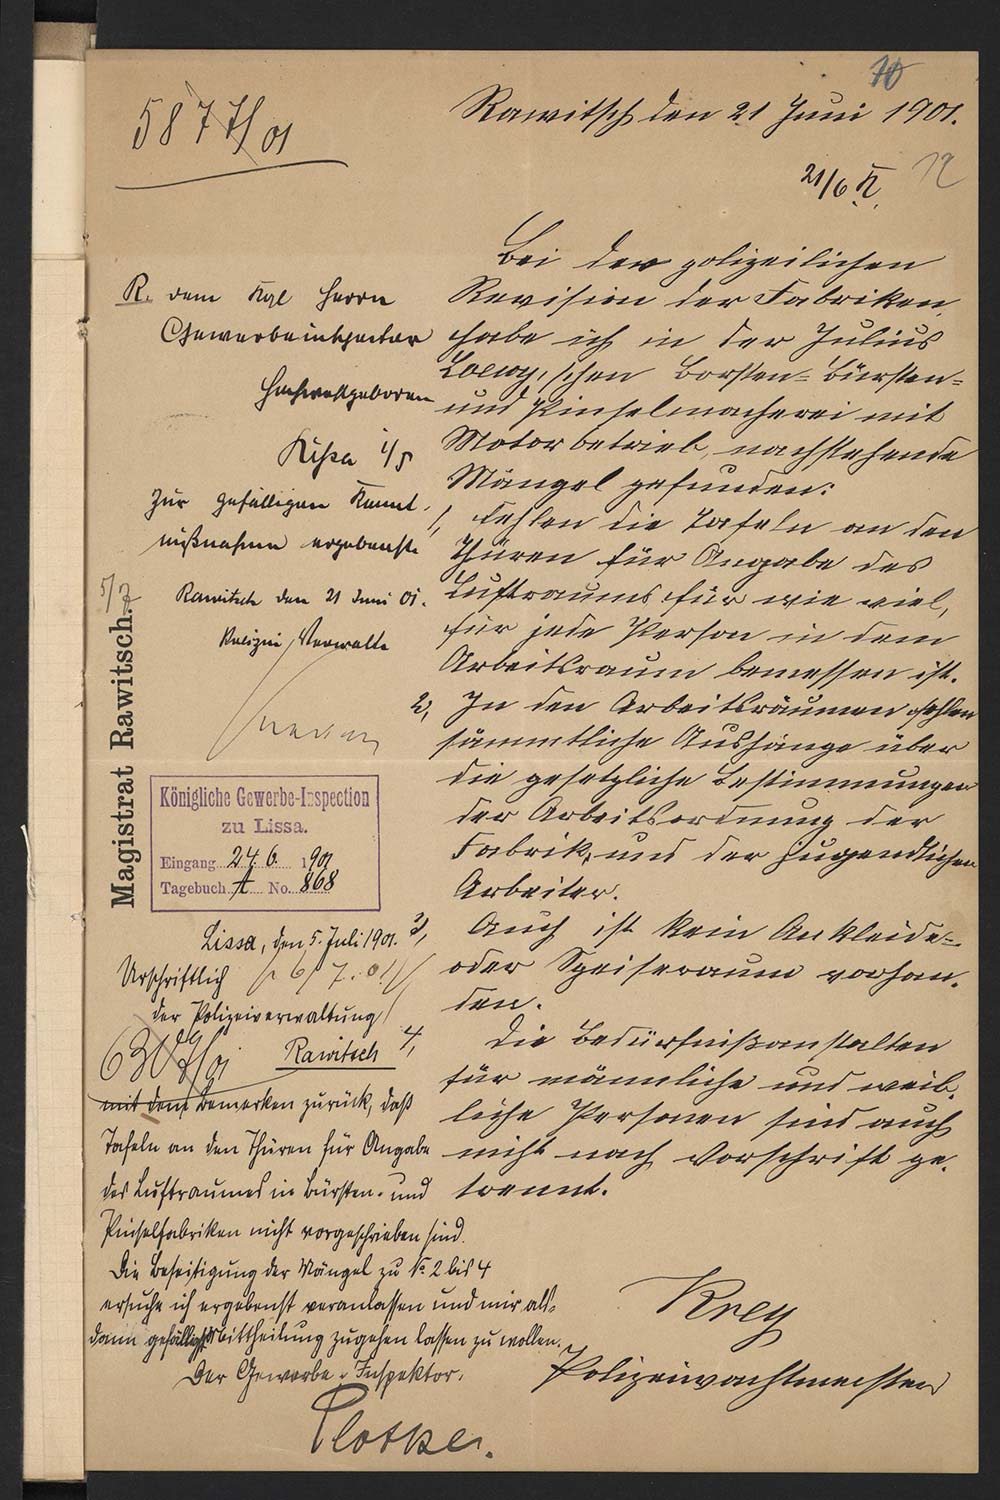 10
5877/01
Rawitsch den 21 Juni 1901.
21/6 K.
12
Bei der polizeilichen
Revision der Fabriken
habe ich in der Julius
Loewy'schen Borsten- Bürsten-
und Pinselmacherei mit
Motorbetrieb, nachstehende
Mängel gefunden:
1, Fehlen die Tafeln an den
Thüren für Angabe des
Luftraums für wie viel,
für jede Person in dem
Arbeitsraum bemessen ist.
2, In den Arbeitsräumen fehlen
sämmtliche Aushänge über
die gesetzliche Bestimmungen
der Arbeitsordnung der
Fabrik, und der jugendlichen
Arbeiter.
3, Auch ist kein Ankleide-
oder Speiseraum vorhan-
den.
4, Die Bedürfnißanstalten
für männliche und weib-
liche Personen sind auch
nicht nach Vorschrift ge-
trennt.
Krey
Polizeiwachtmeister
R. dem Kgl Herrn
Gewerbeinspector
Hochwohlgeboren
Lissa i/P
zur gefälligen Kennt-
nißnahme ergebenst
Rawitsch den 21 Juni 01.
Polizei Verwaltg
Magistrat Rawitsch.
5/7
Königliche Gewerbe-Inspection
zu Lissa.
Eingang 24. 6. 1901
Tagebuch A No. 868
Lissa, den 5. Juli 1901.
Urschriftlich
6/7.01
der Polizeiverwaltung
Rawitsch
mit dem Bemerken zurück, daß
Tafeln an den Thüren für Angabe
des Luftraumes in Bürsten- und
Pinselfabriken nicht vorgeschrieben sind.
Die Beseitigung der Mängel zu No 2 bis 4
ersuche ich ergebenst veranlassen und mir als-
dann gefälligst Mittheilung zugehen lassen zu wollen.
Der Gewerbe-Inspektor.
Plotke.